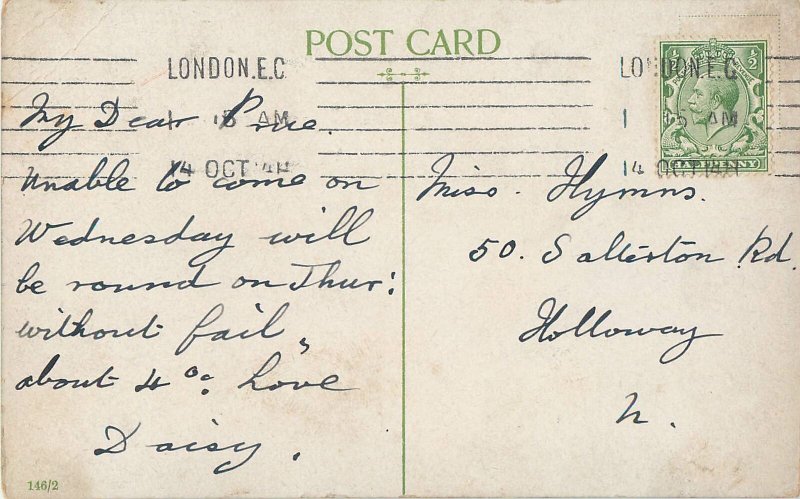 POST CARD
LONDON. E.C
1 15 AM
14 OCT 14
My Dear Prue.
Unable to come on
Wednesday will
be round on Thur:
without fail,
about 4°° Love
Daisy.
146/2
LONDON. E.C
1 15 AM
14 OCT 14
½ ½
HALFPENNY
Miss. Hymns.
50. Salterton Rd.
Holloway
N.